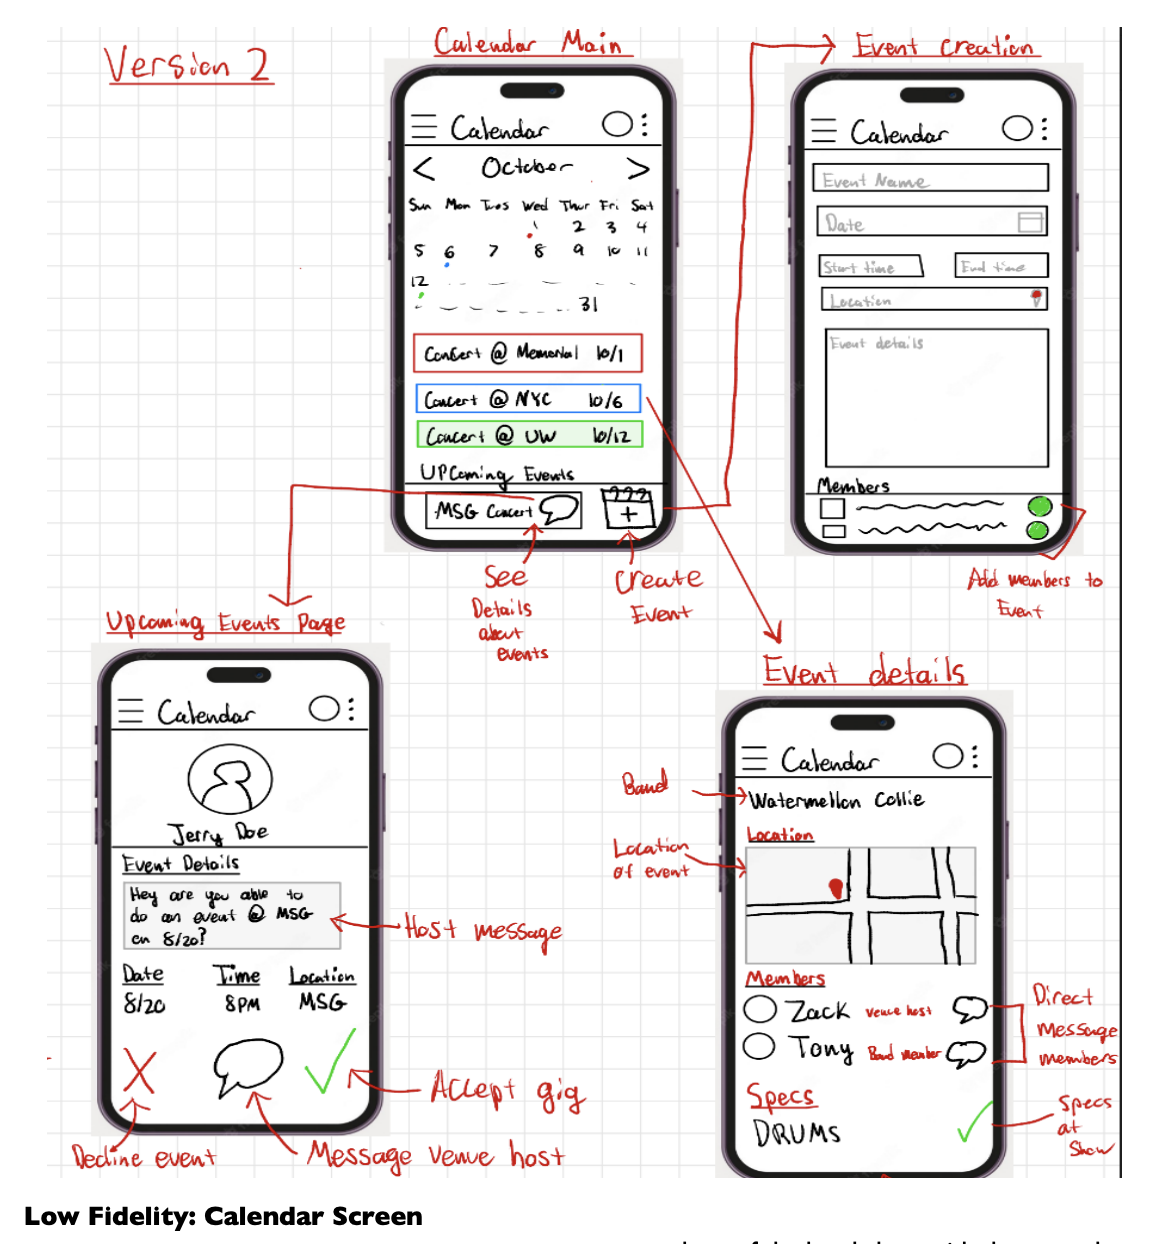 Version 2
Calendar Main
Calendar
< October >
Sun Mon Tues Wed Thur Fri Sat
1 2 3 4
5 6 7 8 9 10 11
12
31
Concert @ Memorial 10/1
Concert @ NYC 10/6
Concert @ UW 10/12
UPComing Events
MSG Concert
See
Details
about
events
Create
Event
Event Creation
Calendar
Event Name
Date
Start time End time
Location
Event details
Members
Add members to
Event
Upcoming Events Page
Calendar
Jerry Doe
Event Details
Hey are you able to
do an event @ MSG
on 8/20?
Host message
Date Time Location
8/20 8PM MSG
X
Accept gig
Decline event
Message Venue host
Event details
Calendar
Band
Watermellon Collie
Location
Location
of event
Members
Zack Venue host
Tony Band Member
Direct
Message
members
Specs
DRUMS
Specs
at
Show
Low Fidelity: Calendar Screen